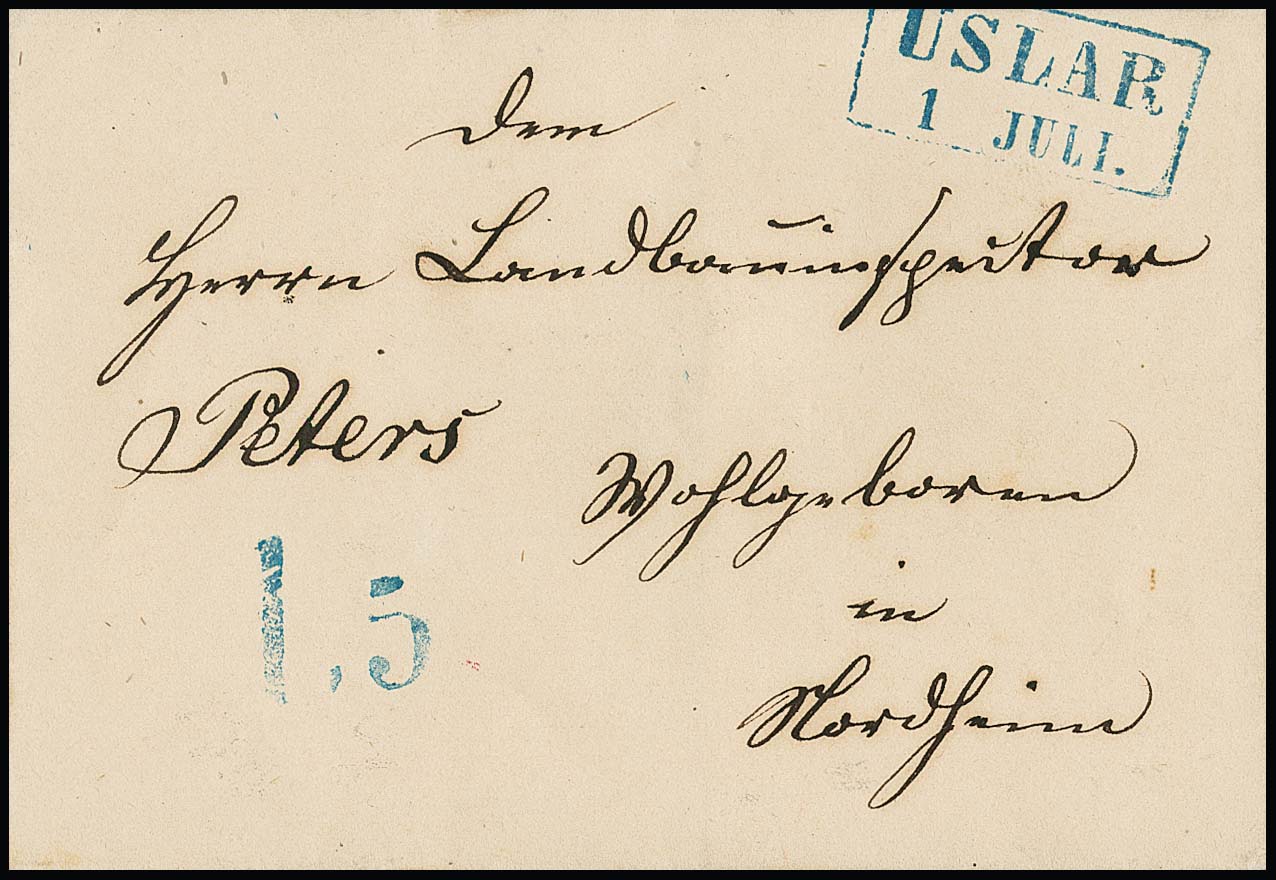 USLAR
1 JULI.
Dem
Herrn Landbauinspector
Peters
Wohlgeboren
in
Nordheim
1,5